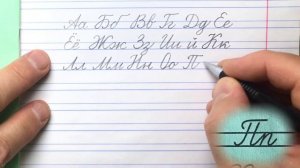 Аа Бб Вв Гг Дд Ее
Ёё Жж Зз Ии й Кк
Лл Мм Нн Оо П
Пп